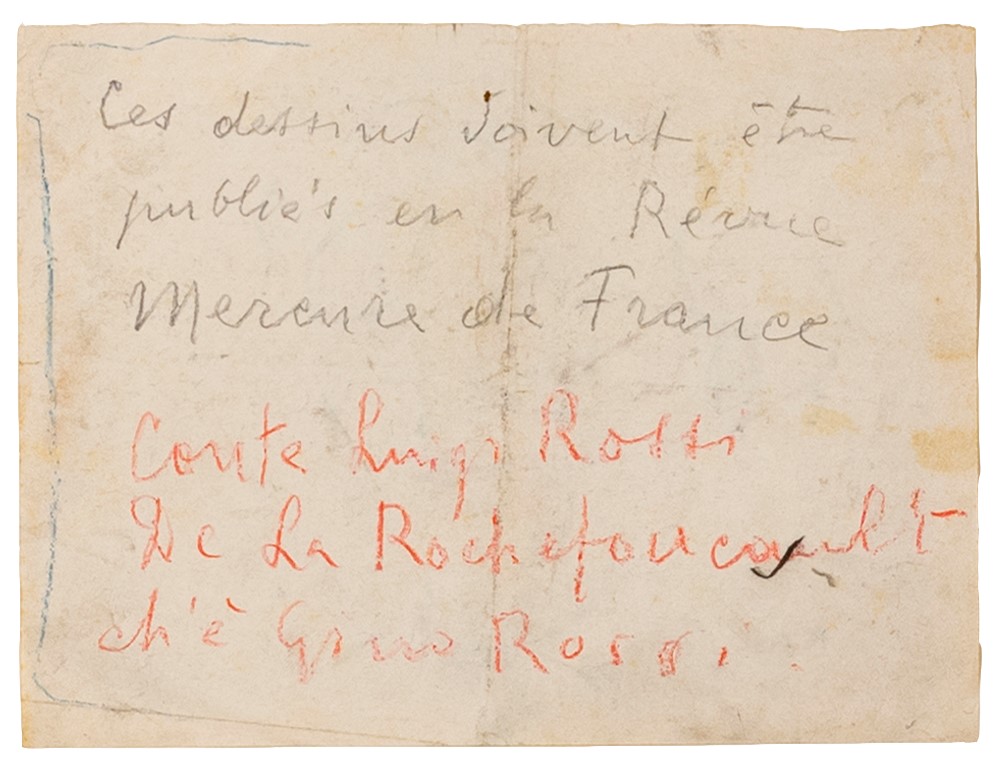 Ces dessins doivent être
publiés en la Révue
Mercure de France
Conte Luigi Rossi
De La Rochefoucault
ch'è Gino Rossi.